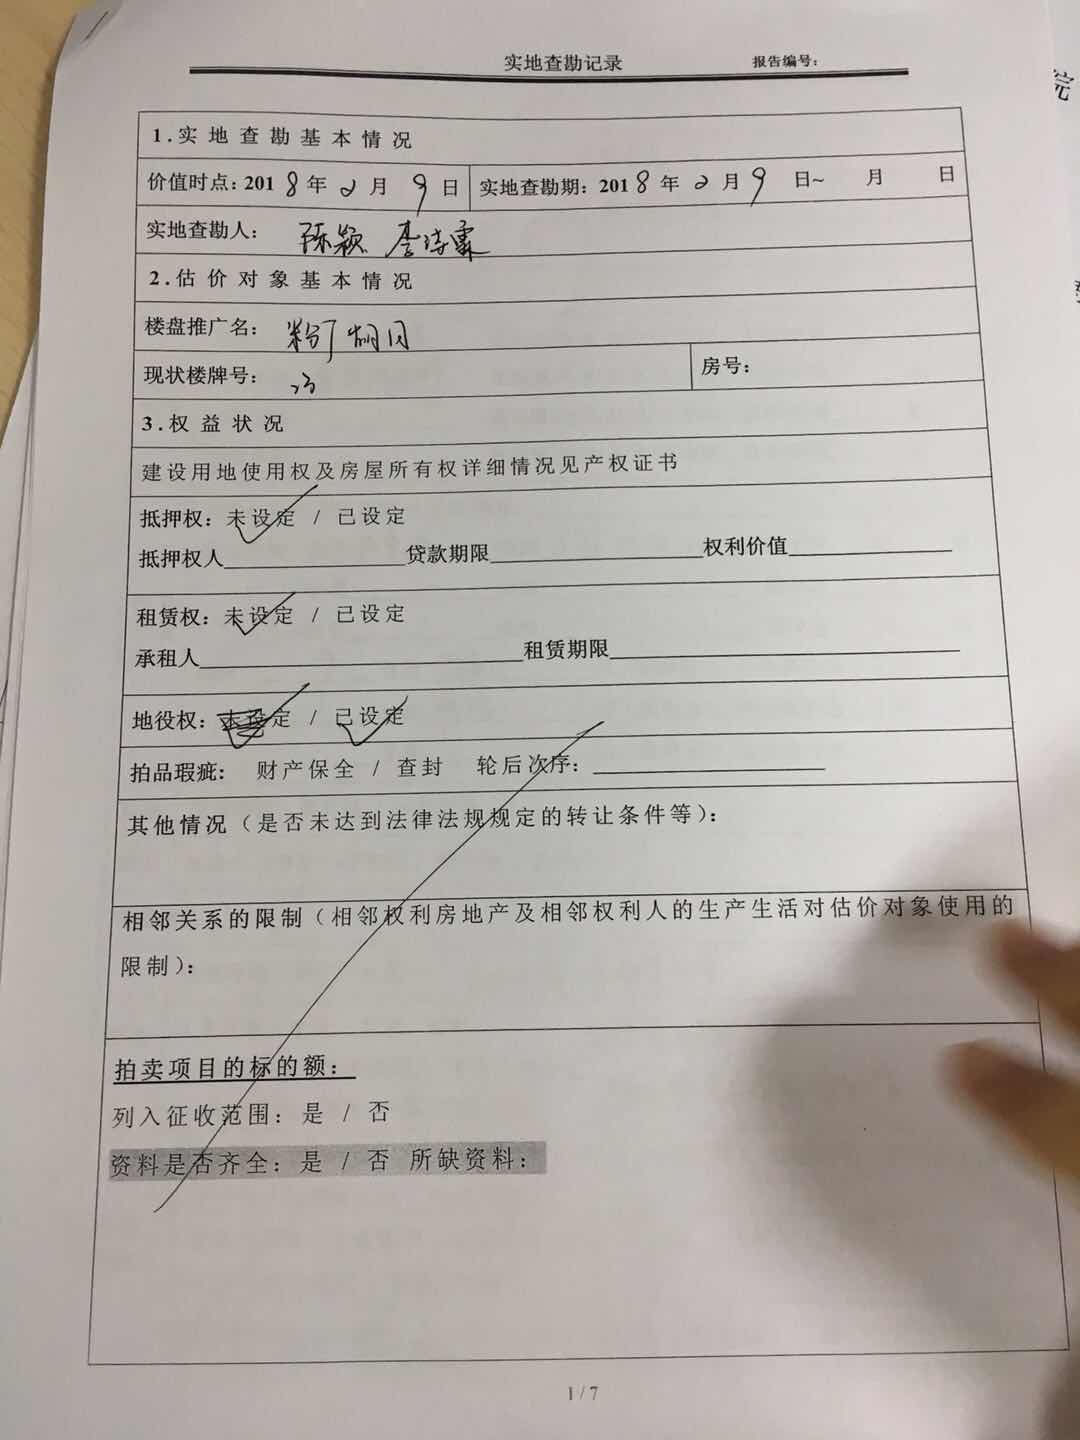 实地查勘记录 报告编号：
院
1.实地查勘基本情况
价值时点：2018年2月9日 实地查勘期：2018年2月9日~ 月 日
实地查勘人：陈颖
2.估价对象基本情况
楼盘推广名：
现状楼牌号： 房号：
3.权益状况
建设用地使用权及房屋所有权详细情况见产权证书
抵押权：未设定 / 已设定
抵押权人____贷款期限____权利价值____
租赁权：未设定 / 已设定
承租人____租赁期限____
地役权：未设定 / 已设定
拍品瑕疵： 财产保全 / 查封 轮后次序：____
其他情况（是否未达到法律法规规定的转让条件等）：
相邻关系的限制（相邻权利房地产及相邻权利人的生产生活对估价对象使用的
限制）：
拍卖项目的标的额：
列入征收范围：是 / 否
资料是否齐全：是 / 否 所缺资料：
1 / 7